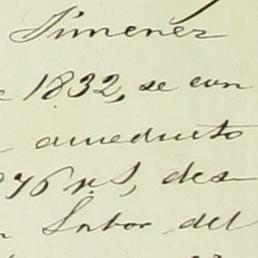 Jimenez
1832, se con
acueducto
76 rs, des
Labor del